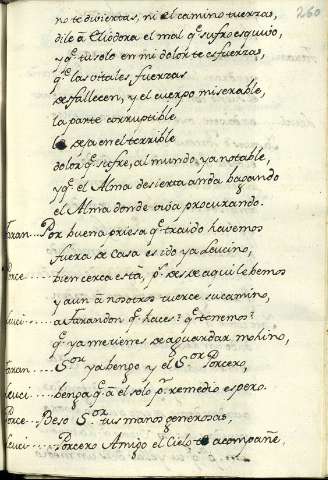 260
no te diviertas, ni el camino tuerzas,
dile a Eliodora el mal q̃ sufro esquivo,
y q̃ tu solo en mi dolor te esfuerzas,
q̃ las vitales fuerzas
desfallecen, y el cuerpo miserable,
la parte corruptible,
desa en el terrible
dolor q̃ sufre, al mundo, ya notable,
y q̃ el Alma desierta anda bagando
el Alma donde viva procurando.
Faran.... Por buena priesa q̃ traido havemos
fuera de Casa es ido ya Leucino,
Porce...... bien cerca està, pʳ. desde aqui le bemos
y aun à nosotros tuerce su camino,
Leuci...... a Farandon q̃ haces? q̃ tenemos?
q̃ ya me tienes de aguardar mohino,
Faran...... Sᵒʳ ya bengo y el Sᵒʳ Porcero,
Leuci...... benga q̃ à el solo pʳ. remedio espero.
Porce... Beso Sᵒʳ. tus manos generosas,
Leuci...... Porcero Amigo el Cielo te acompañe,